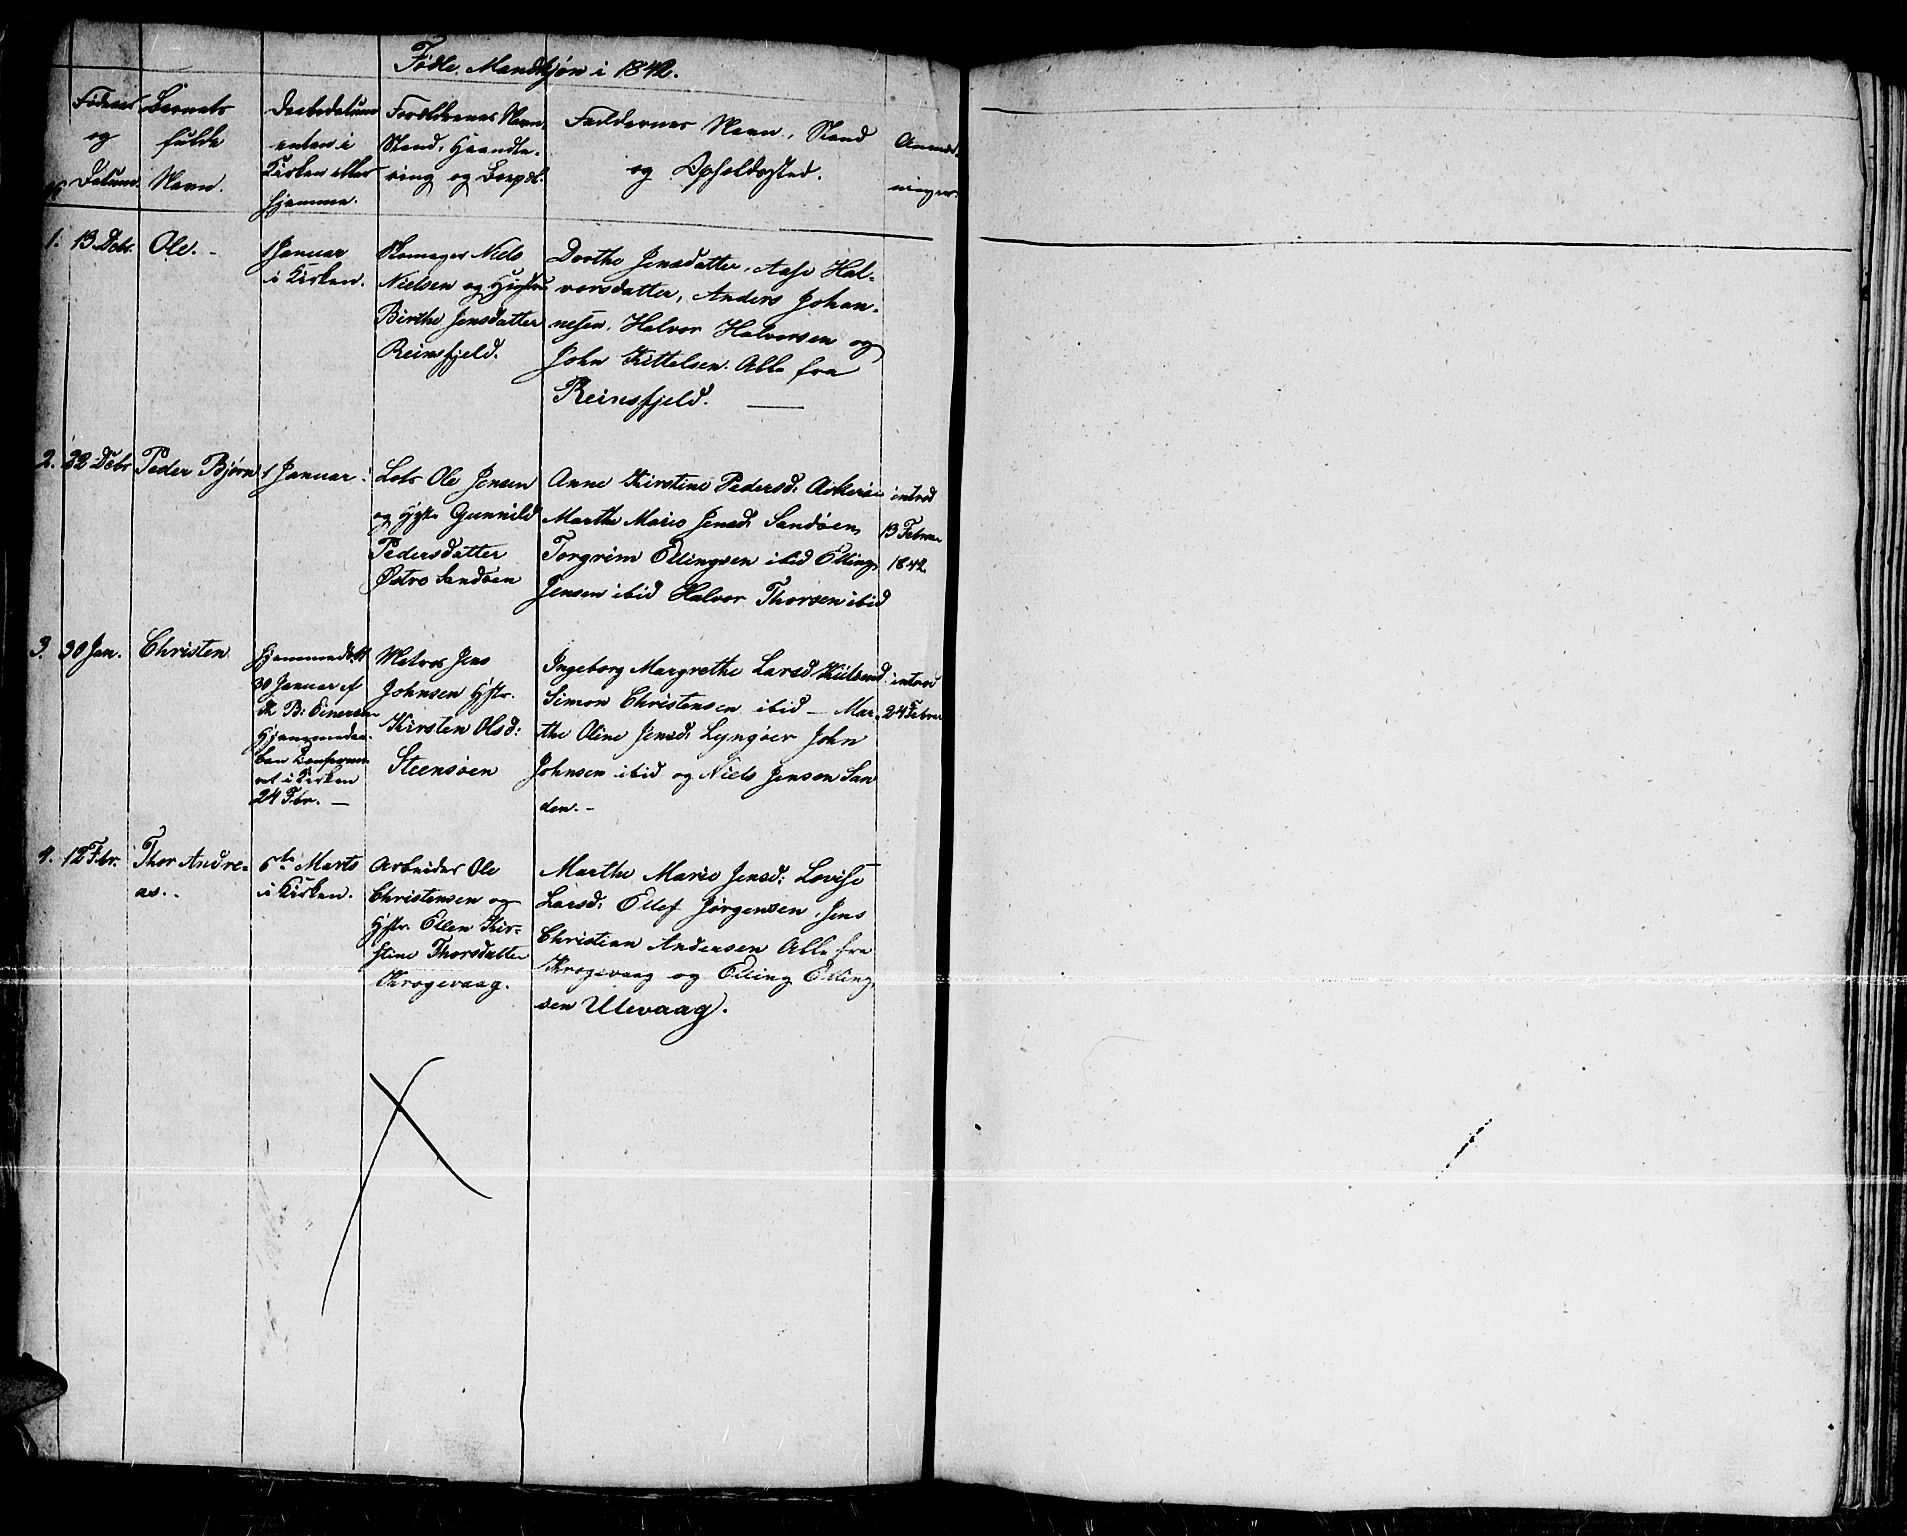 Födte Mandkjøn i 1842.
No
Fødsels
og
Datum.
Barnets
fulde
Navn.
Daabsdatum
enten i
Kirken eller
hjemme.
Forældrenes Navn,
Stand, Haandte-
ring og Boepæl.
Faddernes Navn, Stand
og Opholdssted.
Anmærk-
ninger.
1.
13 Dcbr.
Ole. -
1 Januar
i Kirken.
Skomager Niels
Nielsen og Hustru
Birthe Jensdatter
Reinsfjeld.
Dorthe Jensdatter, Aase Hal-
vorsdatter, Anders Johan-
nesen, Halvor Halvorsen og
John Kittelsen. Alle fra
Reinsfjeld. —
2.
22 Dcbr
Peder Bjørn
1 Januar
Lots Ole Jensen
og Hgst. Gunnild
Pedersdatter
Østre Sandøen
Anne Kirstine Pedersd: Askerøe
Marthe Marie Jensd: Sandøen,
Torgrim Ellingsen ibid Elling
Jensen ibid Halvor Thorsen ibid
introd
13 Februar
1842
3.
30 Jan.
Christen
Hjemmedøbt
30 Januar af
B: Einersen
Hjemmedaa-
ben Confirme-
ret i Kirken
24 Fbr. —
Matros Jens
Johnsen Hstr.
Kirsten Olsd:
Steensøen
Ingeborg Margrethe Larsd
Simon Christensen ibid — Mar-
the Oline Jensd: Lyngøer John
Johnsen ibid og Niels Jensen San
den. -
introd
24 Febru
4.
12 Fbr.
Thor Andre-
as. -
6te Marts
i Kirken.
Arbeider Ole
Christensen og
Hstr. Ellen Kir-
stine Thorsdatter
Krogevaag.
Marthe Marie Jensd: Lovise
Larsd: Ellef Jørgensen, Jens
Christian Andersen Alle fra
Krogevaag og Elling Elling-
sen Ulevaag.